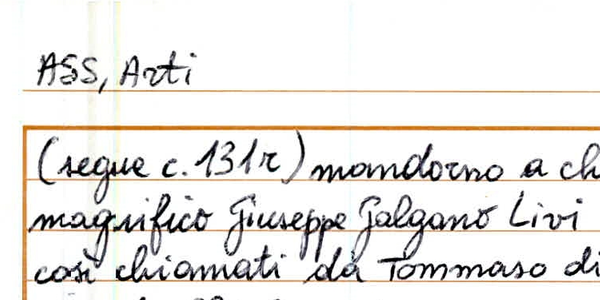 ASS, Arti
(segue c. 131r) mandorno a ch
magnifico Giuseppe Galgano Livi
così chiamati da Tommaso di